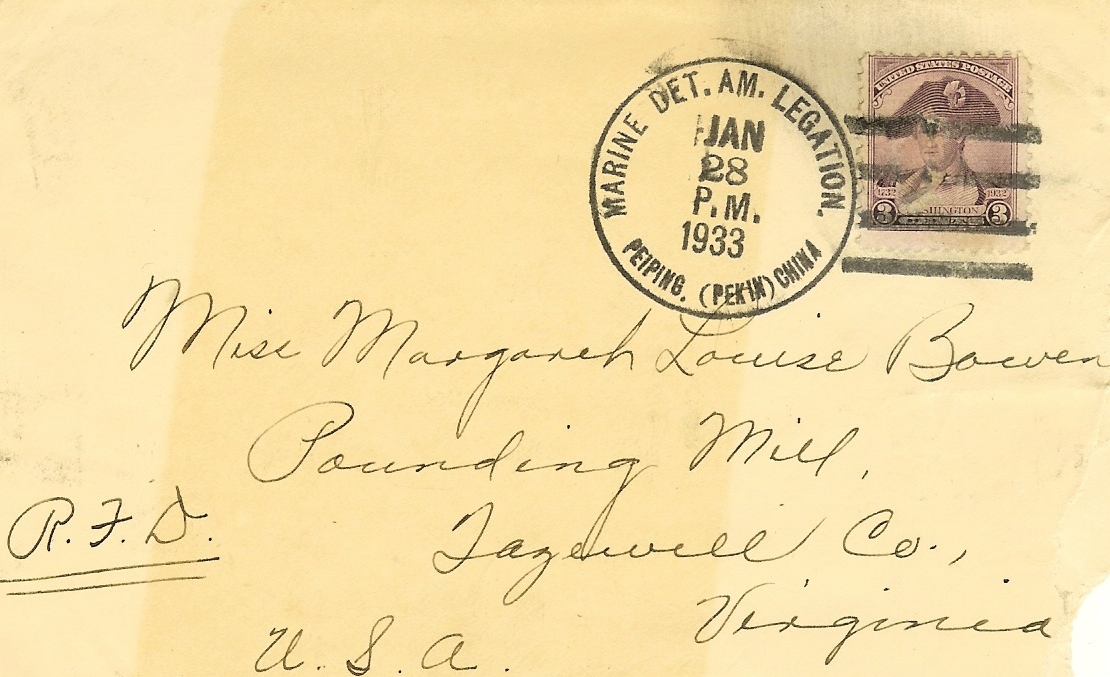 MARINE DET. AM. LEGATION.
JAN
28
P.M.
1933
PEIPING. (PEKIN) CHINA
UNITED STATES POSTAGE
1732 1932
3 3
Miss Margaret Louise Bowen
Pounding Mill,
R.F.D.
Tazewell Co.,
Virginia
U. S. A.